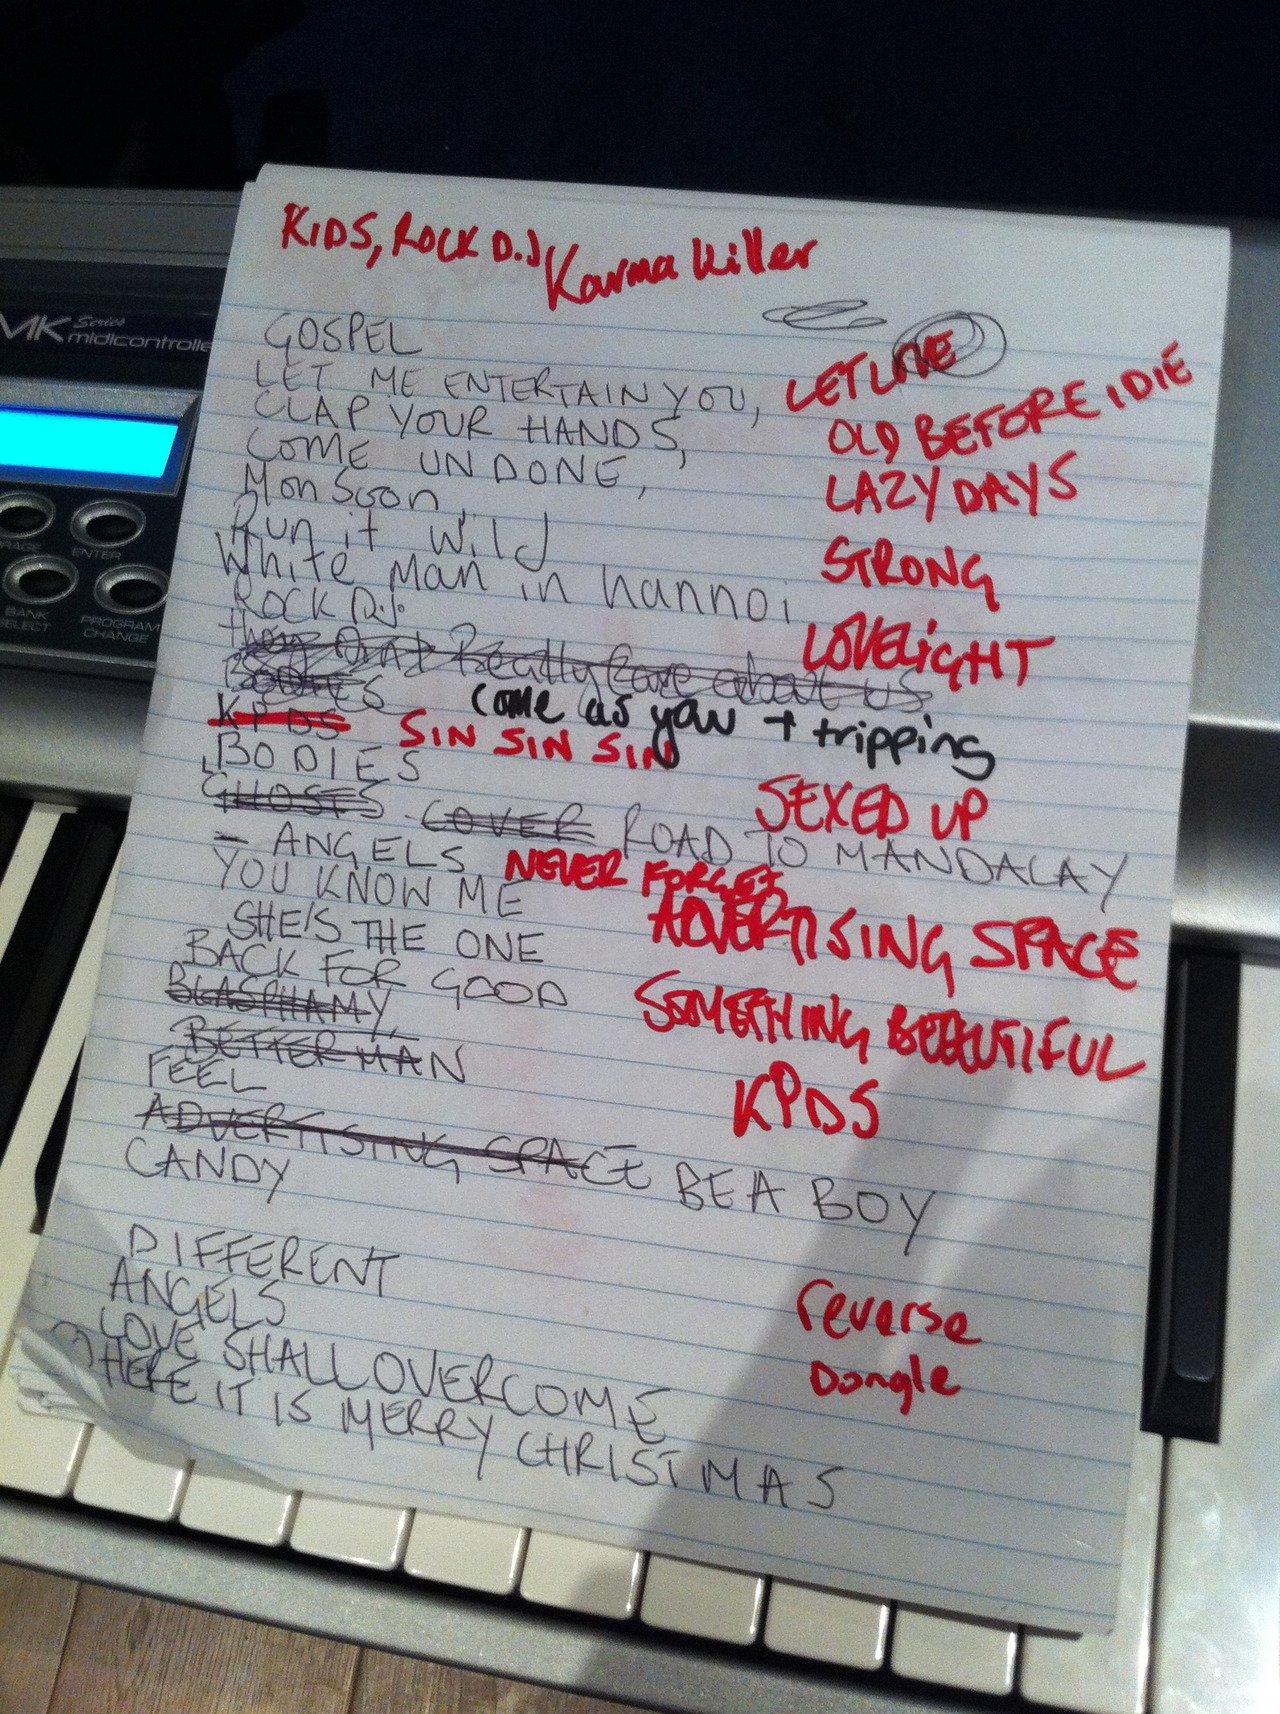 KIDS, ROCK D.J Karma Killer
GOSPEL
LET ME ENTERTAIN YOU, LETLIVE
CLAP YOUR HANDS, OLD BEFORE I DIE
COME UNDONE, LAZY DAYS
MonSoon,
Run it Wild STRONG
White Man in hannoi
ROCK D.J. LOVELIGHT
they Dont Really Care about us
BODIES come as you + tripping
KPDS SIN SIN SIN
BODIES SEXED UP
GHOSTS COVER ROAD TO MANDALAY
- ANGELS NEVER FORGET
YOU KNOW ME ADVERTISING SPACE
SHE'S THE ONE
BACK FOR GOOD SOMETHING BEAUTIFUL
BLASPHAMY,
BETTER MAN KPDS
FEEL
ADVERTISING SPACE BE A BOY
CANDY
DIFFERENT
ANGELS reverse
LOVE SHALL OVERCOME Dongle
HERE IT IS MERRY CHRISTMAS
MK Series
midicontrolle
ENTER
BANK
SELECT
PROGRAM
CHANGE